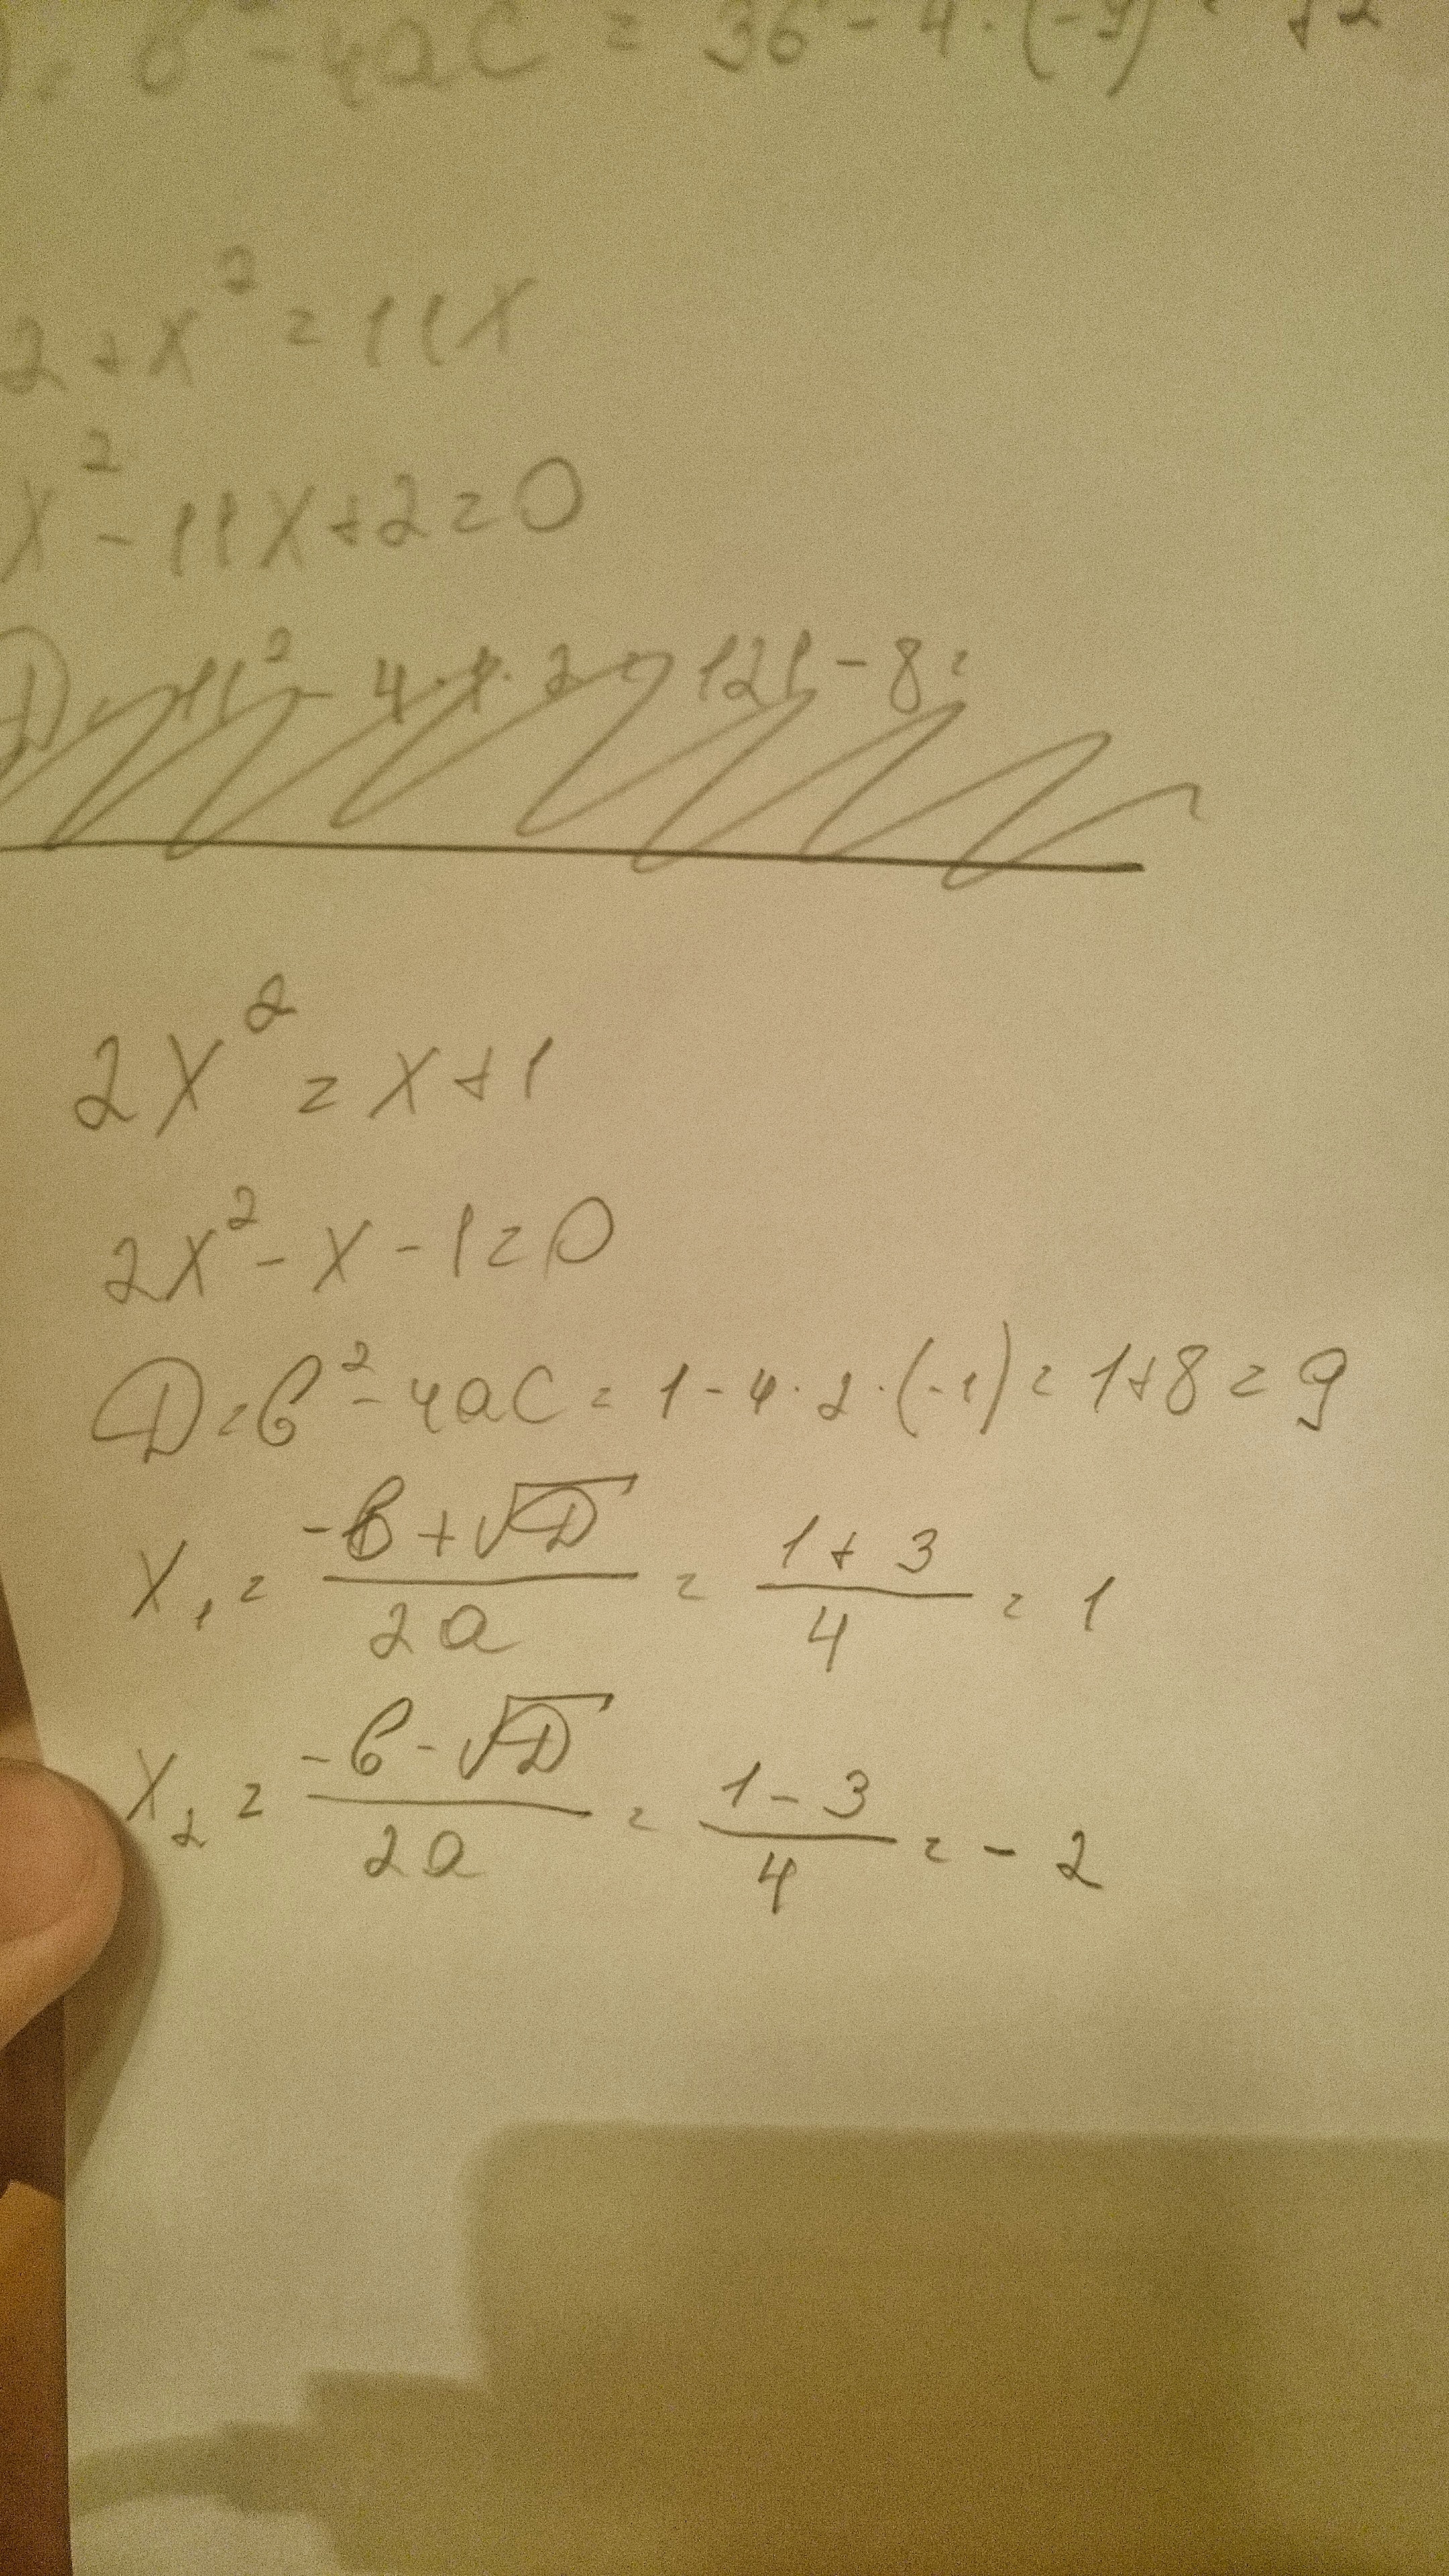 = b² - 4ac = 36 - 4 · (-9) = 72
2 + x² = 11x
x² - 11x + 2 = 0
D = 11² - 4 · 1 · 2 = 121 - 8 =
2x² = x + 1
2x² - x - 1 = 0
D = b² - 4ac = 1 - 4 · 2 · (-1) = 1 + 8 = 9
x₁ = (-b + √D) / 2a = (1 + 3) / 4 = 1
x₂ = (-b - √D) / 2a = (1 - 3) / 4 = - 2